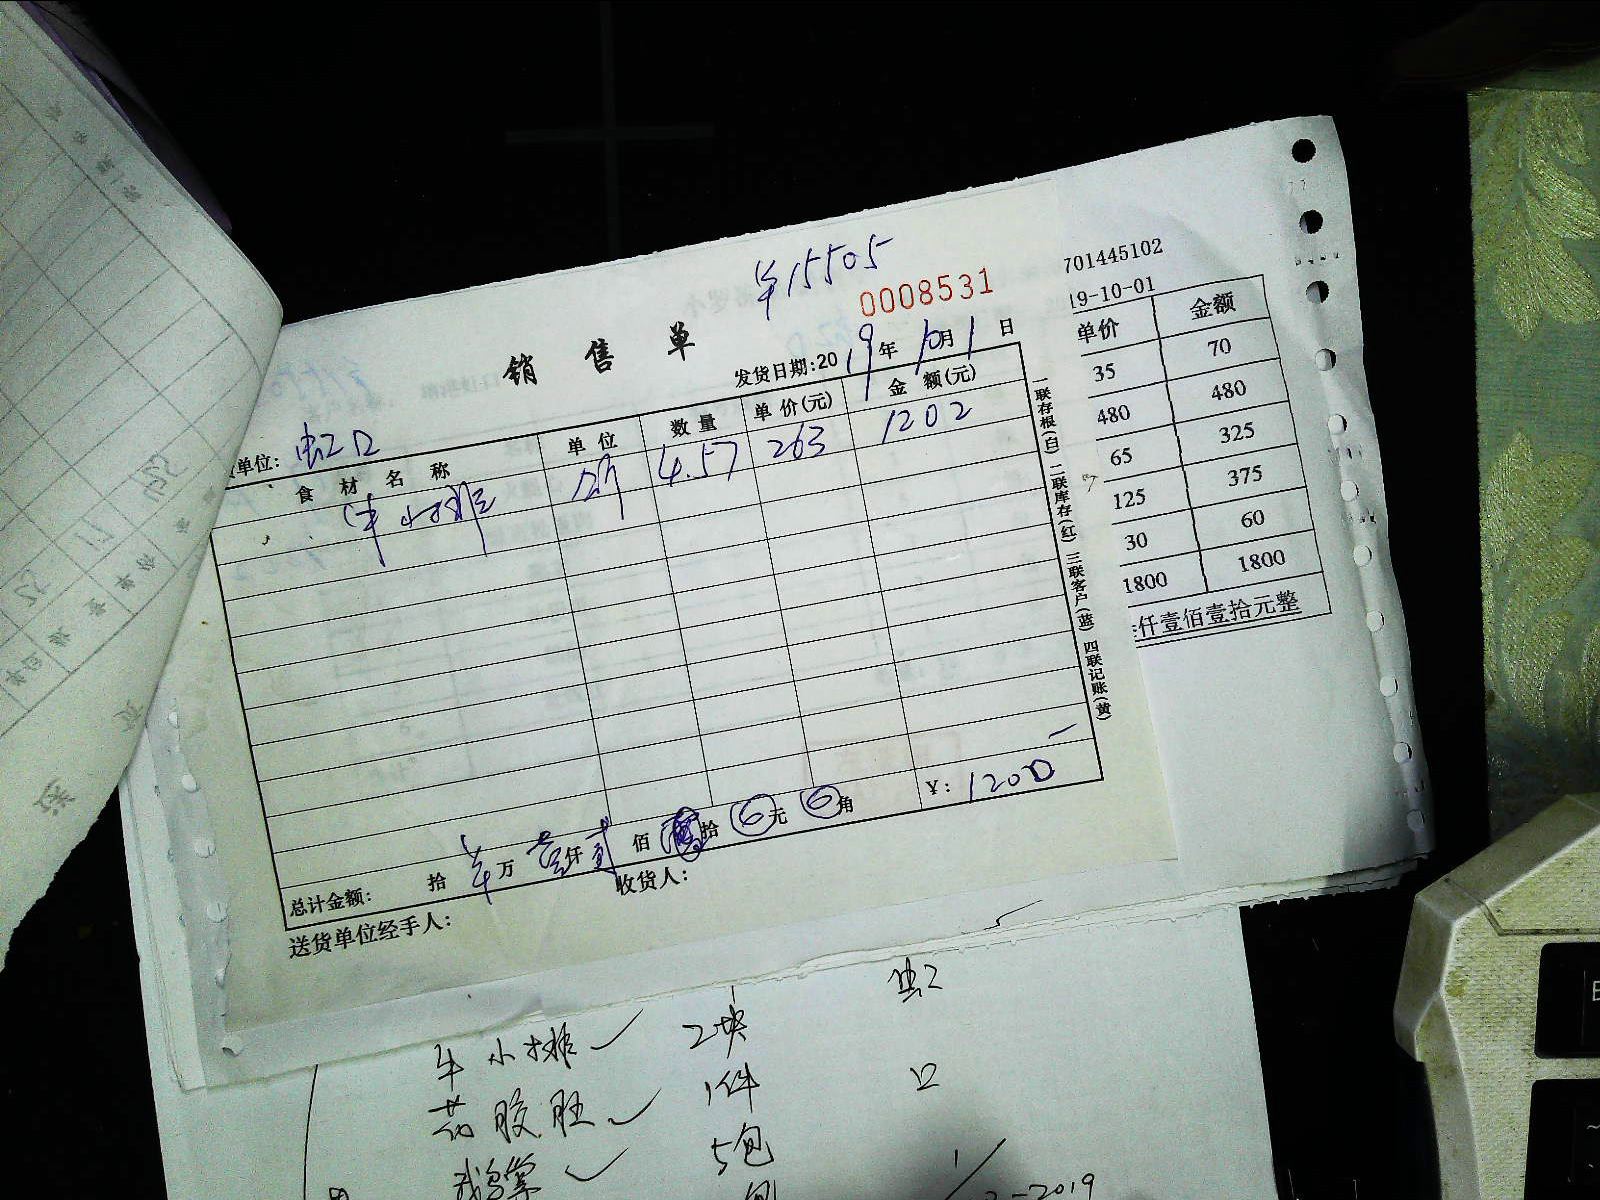 ¥15505
0008531
销售单
发货日期:2019年10月1日
单位: 虹口
食材名称 单位 数量 单价(元) 金额(元)
牛小排 4.57 263 1202
¥: 1200
总计金额: 拾 万 壹仟贰佰 拾 元 角
送货单位经手人: 收货人:
一联存根(白) 二联库存(红) 三联客户(蓝) 四联记账(黄)
701445102
19-10-01
单价 金额
35 70
480 480
65 325
125 375
30 60
1800 1800
仟壹佰壹拾元整
牛小排 2块 虹
1件 口
5包
-2019